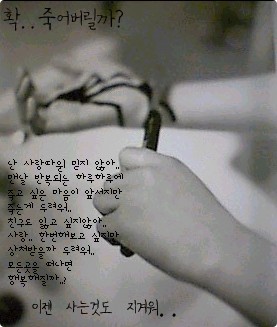 확.. 죽어버릴까?
난 사랑따윈 믿지 않아..
맨날 반복되는 하루하루에
죽고 싶은 마음이 앞서지만
죽는게 두려워..
친구도 잃고 싶지않아..
사랑.. 한번해보고 싶지만
상처받을까 두려워..
모든곳을 떠나면
행복해질까..?
이젠 사는것도 지겨워..